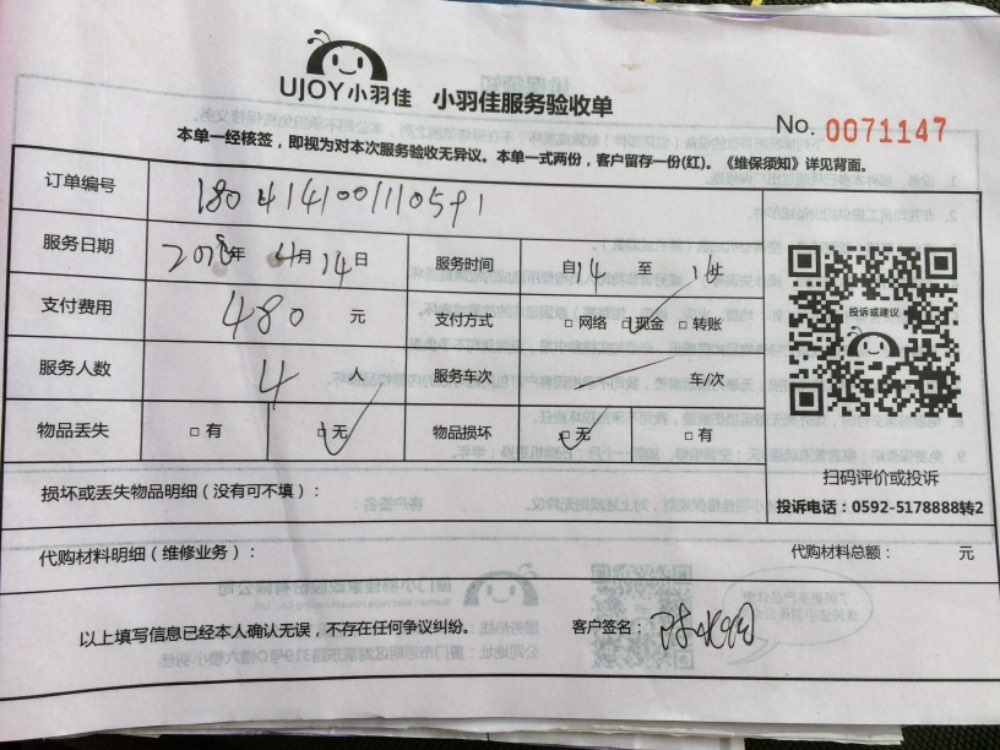 UJOY小羽佳 小羽佳服务验收单
No. 0071147
本单一经核签，即视为对本次服务验收无异议。本单一式两份，客户留存一份(红)。《维保须知》详见背面。
订单编号 180414100110591
服务日期 2018年 4月 14日 服务时间 自14 至
支付费用 480 元 支付方式 □ 网络 □ 现金 □ 转账
投诉或建议
服务人数 4 人 服务车次 车/次
物品丢失 □ 有 □ 无 物品损坏 □ 无 □ 有
扫码评价或投诉
损坏或丢失物品明细（没有可不填）：
投诉电话：0592-5178888转2
代购材料明细（维修业务）： 代购材料总额： 元
以上填写信息已经本人确认无误，不存在任何争议纠纷。 客户签名：